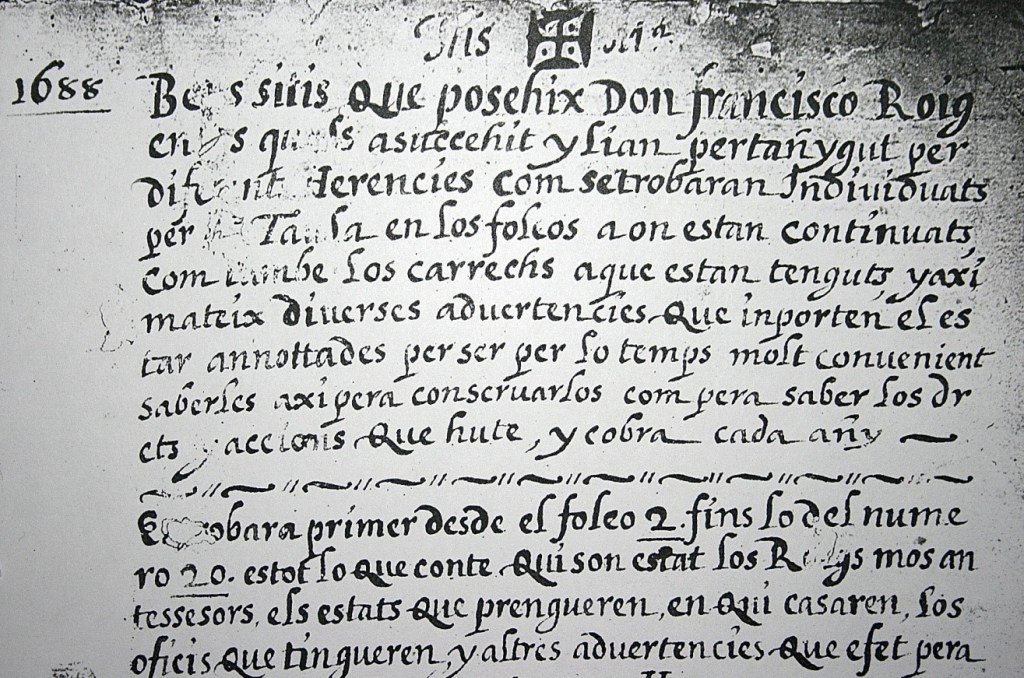 Jhs
1688
Bens sitis Que posehix Don francisco Roig
en los quals a succehit y lian pertañygut per
diferents Herencies com se trobaran Individuats
per la Taula en los foleos a on estan continuats,
com tambe los carrechs a que estan tenguts, y axi
mateix diverses advertencies Que inporten el es
tar annottades per ser per lo temps molt convenient
saberles axi pera conservarlos com pera saber los dr
ets y accions Que hute, y cobra cada añy
Es trobara primer desde el foleo 2. fins lo del nume
ro 20. estot lo Que conte Qui son estat los Roigs mos an
tessesors, els estats Que prengueren, en Qui casaren, los
oficis Que tingueren, y altres advertencies Que e fet pera